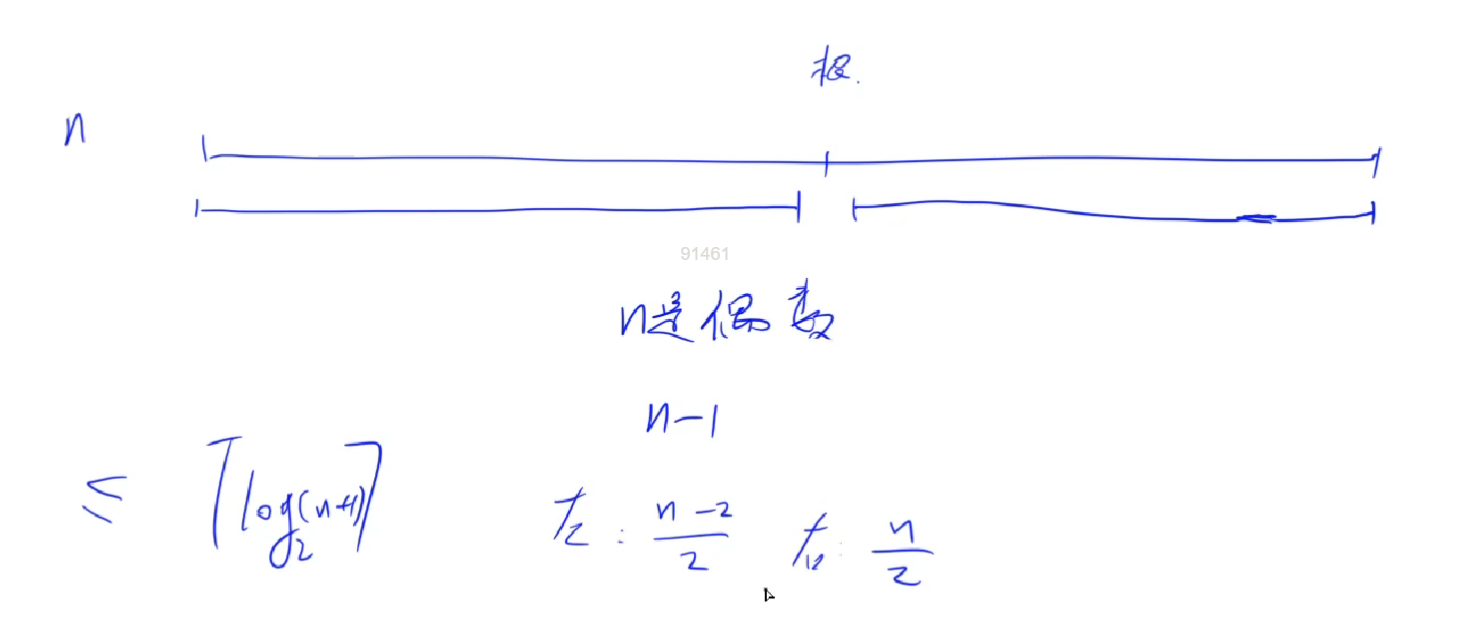 根.
n
91461
n是偶数
n-1
≤ ⌈log₂(n+1)⌉ 左: (n-2)/2 右: n/2